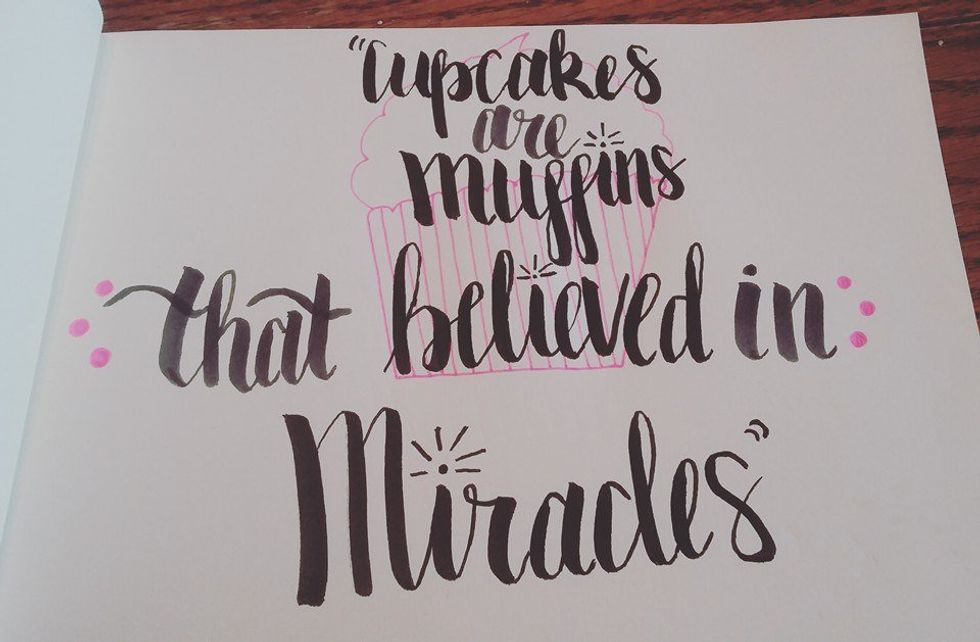 "Cupcakes
are
muffins
that believed in
Miracles"